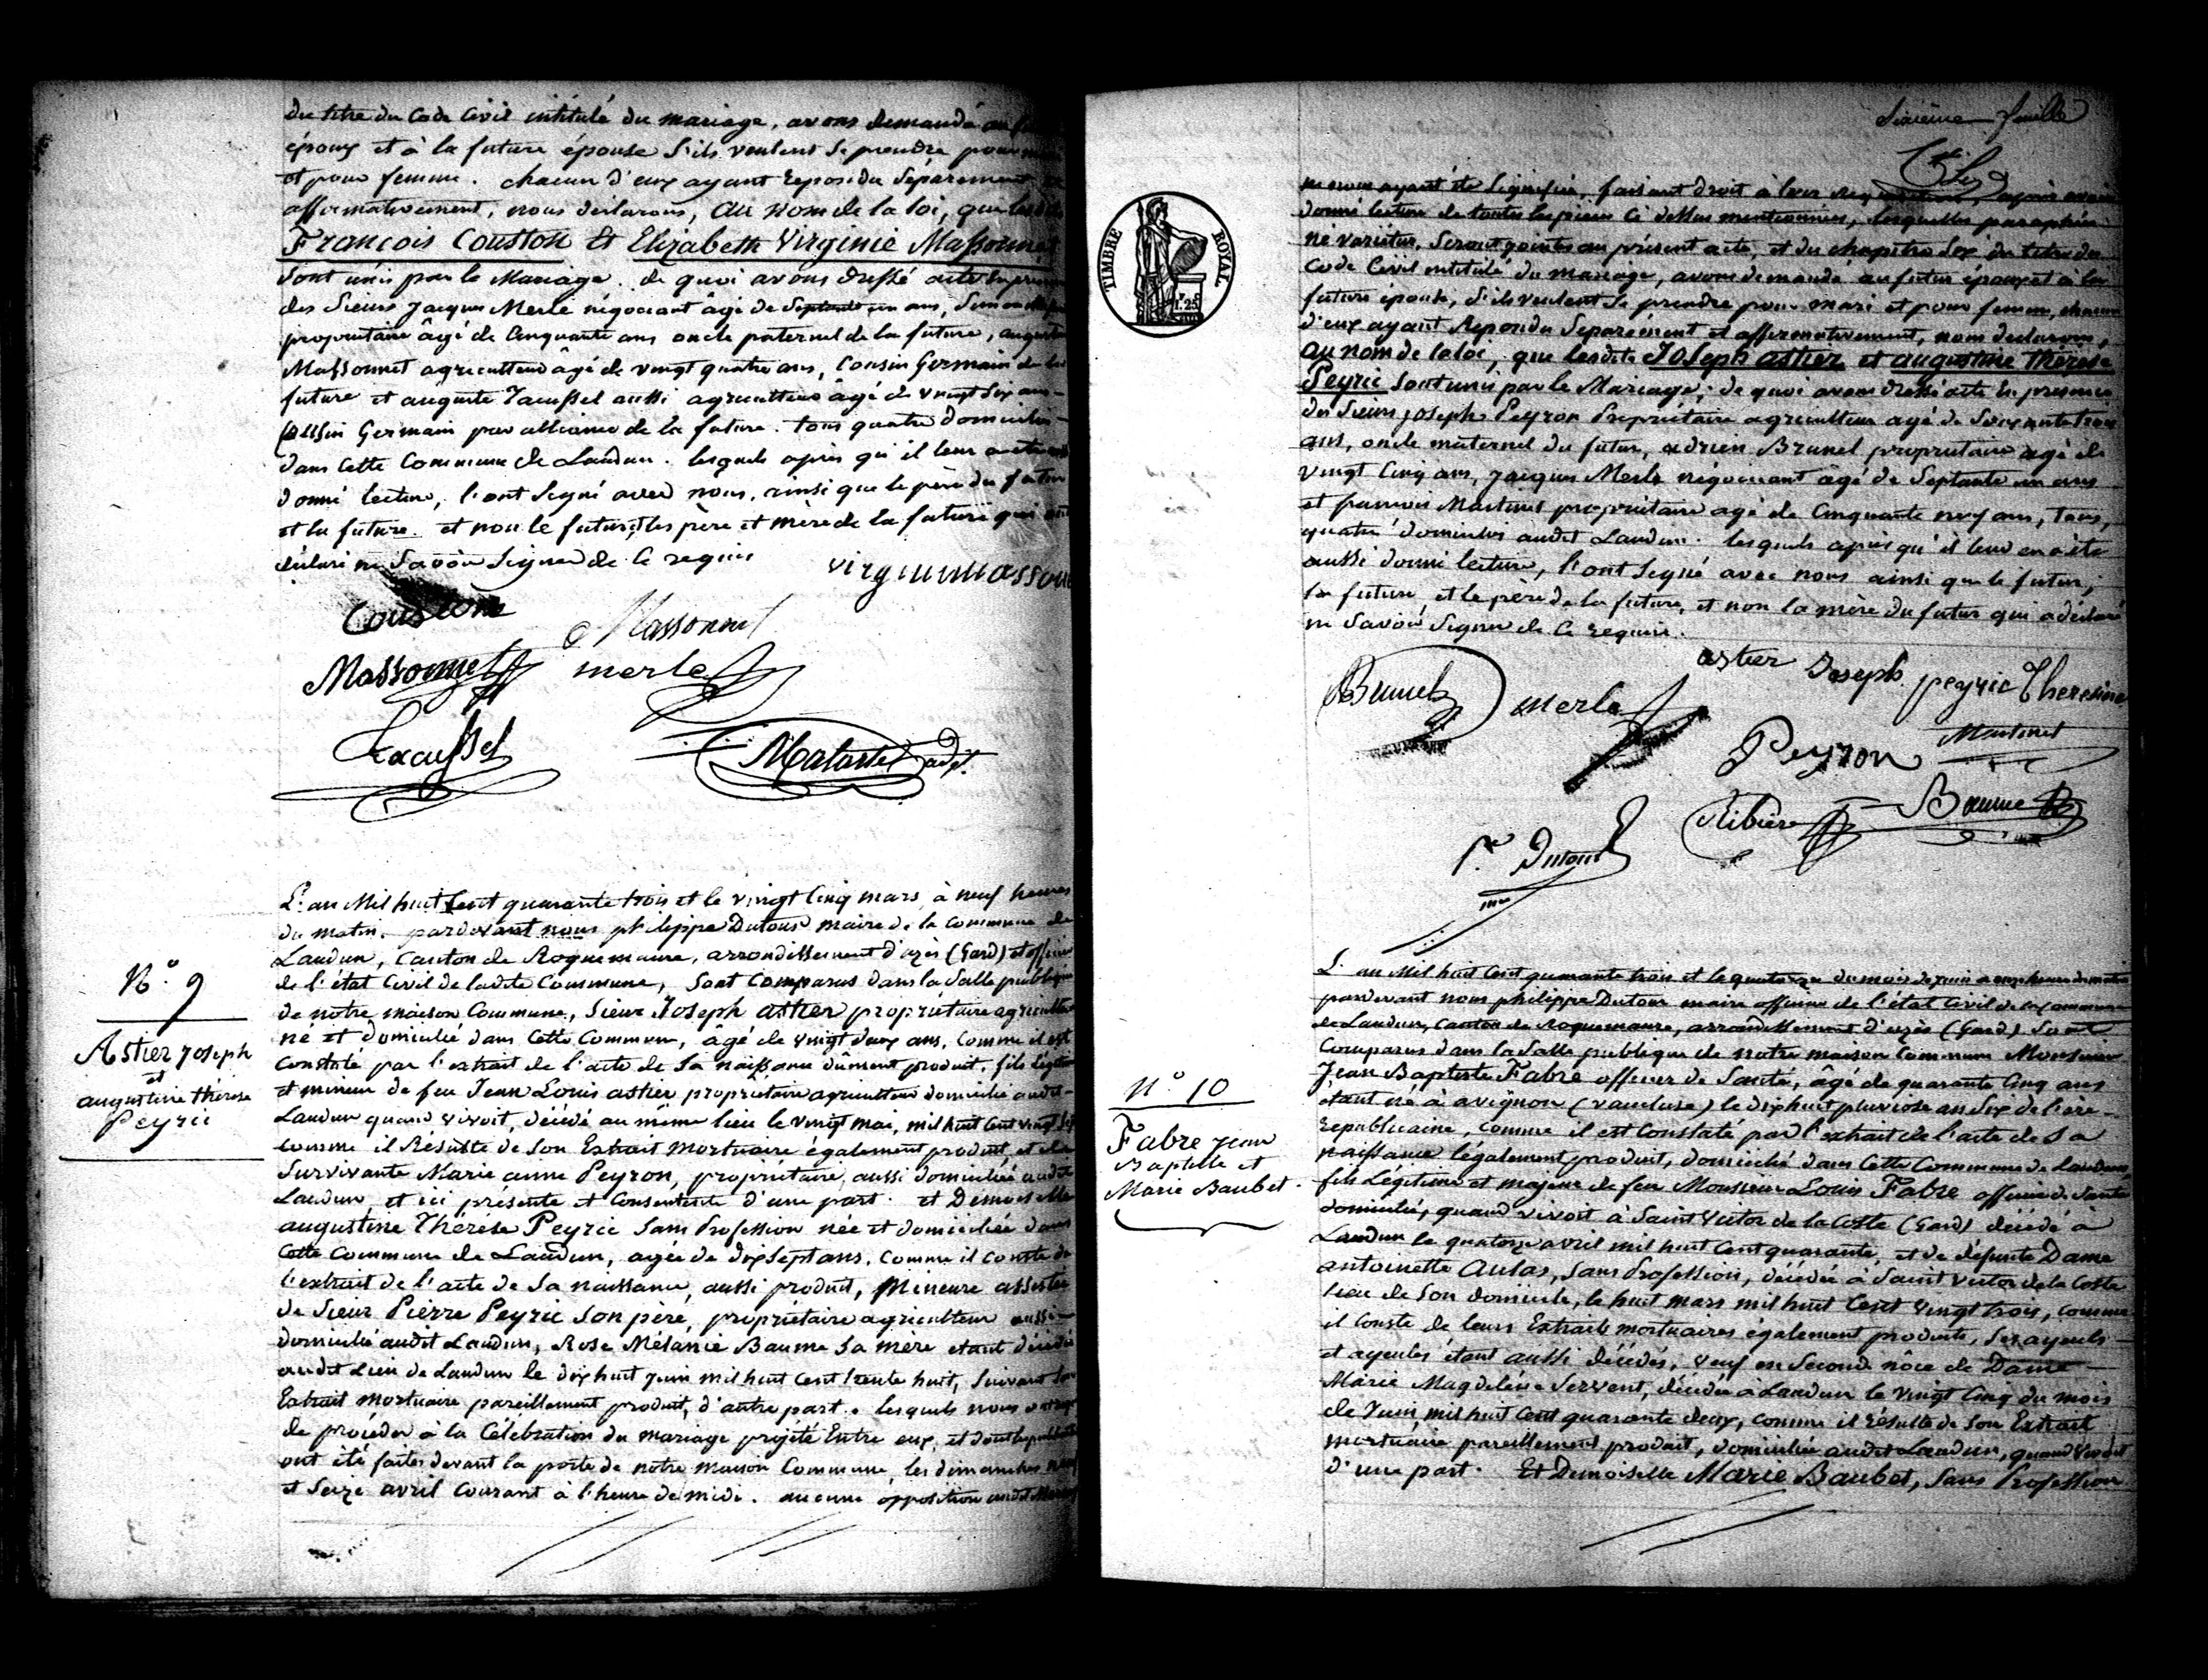 du titre du Code Civil intitulé du mariage, avons demandé au
époux et à la future épouse s'ils veulent se prendre pour
et pour femme. chacun d'eux ayant répondu séparement
affirmativement, nous déclarons, au nom de la loi, que
François Couston et Elizabeth Virginie Massonnet
sont unis par le Mariage. de quoi avons dressé acte en
des Sieurs Jacques Merle négociant âgé de Septante un ans,
propriétaire âgé de Cinquante ans oncle paternel de la future,
Massonnet agriculteur âgé de vingt quatre ans, Cousin Germain de la
future et auguste Jaussel aussi agriculteur âgé de vingt six ans
Cousin Germain par alliance de la future. tous quatre domiciliés
dans cette Commune de Laudun. lesquels après qu'il leur
donné lecture, l'ont signé avec nous, ainsi que le père du futur
et la future. et non le futur, les père et mère de la future qui ont
déclaré ne savoir signer de ce requis
Couston
Massonnet
Massonnet merle
Matastet adjt.
N.° 9
Astier Joseph
et
augustine thérèse
Peyric
L'an Mil huit Cent quarante trois et le vingt Cinq mars, à neuf heures
du matin. pardevant nous philippe Dutour maire de la Commune de
Laudun, Canton de Roquemaure, arrondissement d'uzès (Gard) et officier
de l'état Civil de ladite Commune, sont Comparus dans la Salle publique
de notre maison Commune, Sieur Joseph astier propriétaire agriculteur
né et domicilié dans Cette Commune, âgé de vingt deux ans, Comme il est
Constaté par l'extrait de l'acte de sa naissance dûment produit, fils légitime
et mineur de feu Jean Louis astier propriétaire agriculteur domicilié audit
Laudun quand vivoit, décédé au même lieu le vingt mai, mil huit Cent vingt
comme il Résulte de Son Extrait mortuaire également produit, et de
Survivante Marie anne Peyron, propriétaire, aussi domiciliée audit
Laudun, et ici présente et Consentente d'une part. et Demoiselle
augustine Thérèse Peyric Sans Profession née et domiciliée dans
Cette Commune de Laudun, agée de dix Sept ans, Comme il conste de
l'extrait de l'acte de Sa naissance, aussi produit, Mineure assistée
de Sieur Pierre Peyric Son père, propriétaire agriculteur aussi
domicilié audit Laudun, Rose Mélanie Baume Sa mère etant décédée
audit Lieu de Laudun le dix huit juin mil huit Cent trente huit, Suivant Son
Extrait mortuaire pareillement produit, d'autre part. lesquels nous
de procéder à la Célébration du mariage projété Entre eux, et dont
ont été faites devant la porte de notre Maison Commune, les dimanches
et Seize avril Courant à l'heure de midi. aucune opposition audit
Sixième feuille
ayant été Signifiée, faisant droit à leur
donné lecture de toutes les pièces Ci dessus mentionnées, lesquelles paraphées
né varietur, Seront jointes au présent acte, et du chapitre Six du titre du
Code Civil intitulé du mariage, avons demandé au futur époux et à la
future épouse, s'ils veulent se prendre pour mari et pour femme, chacun
d'eux ayant Répondu Séparément et affirmativement, nous declarons,
au nom de la loi, que lesdits Joseph astier et augustine thérèse
Peyric Sont unis par le Mariage; de quoi avons dressé acte en présence
des Sieurs joseph Peyron Propriétaire agriculteur agé de Soixante trois
ans, oncle maternel du futur, adrien Brunel propriétaire agé de
vingt Cinq ans, Jacques Merle négociant âgé de Septante un ans
et françois Martinet propriétaire agé de Cinquante neuf ans, tous,
quatre domiciliés audit Laudun. lesquels après qu'il leur en a été
aussi donné lecture, l'ont signé avec nous ainsi que le futur,
la future, et le père de la future, et non la mère du futur qui a déclaré
ne Savoir Signer de Ce requise.
astier Joseph peyric Theresine
Brunel merle
Peyron Martinet
Ribière Baume
Pre Dutour
N° 10
Fabre jean
Baptiste et
Marie Baubet.
L'an Mil huit Cent quarante trois et le quatorze du mois de juin
pardevant nous philippe Dutour maire officier de l'état Civil de la Commune
de Laudun, Canton de Roquemaure, arrondissement d'uzès (Gard) Sont
Comparus dans la Salle publique de notre maison Commune Monsieur
Jean Baptiste Fabre officier de Santé, âgé de quarante Cinq ans
étant né à avignon (vaucluse) le dix huit pluviose an Six de l'ère
Républicaine, Comme il est Constaté par l'extrait de l'acte de Sa
naissance légalement produit, domicilié dans Cette Commune de Laudun
fils Légitime et majeur de feu Monsieur Louis Fabre officier de Santé
domicilié, quand vivoit à Saint Victor de la Coste (Gard) décédé à
Laudun le quatorze avril mil huit Cent quarante, et de défunte Dame
antoinette Aulas, Sans Profession, décédée à Saint Victor de la Coste
lieu de Son domicile, le huit mars mil huit Cent vingt trois, Comme
il Conste de leurs Extraits mortuaires également produits, Ses ayeuls
et ayeules étant aussi décédés, veuf en Seconde nôce de Dame
Marie Magdeleine Servent, décédée à Laudun le vingt Cinq du mois
de Juin, mil huit Cent quarante deux, Comme il résulte de Son Extrait
mortuaire pareillement produit, domiciliée audit Laudun, quand vivoit
d'une part. Et Demoiselle Marie Baubet, Sans Profession
TIMBRE ROYAL